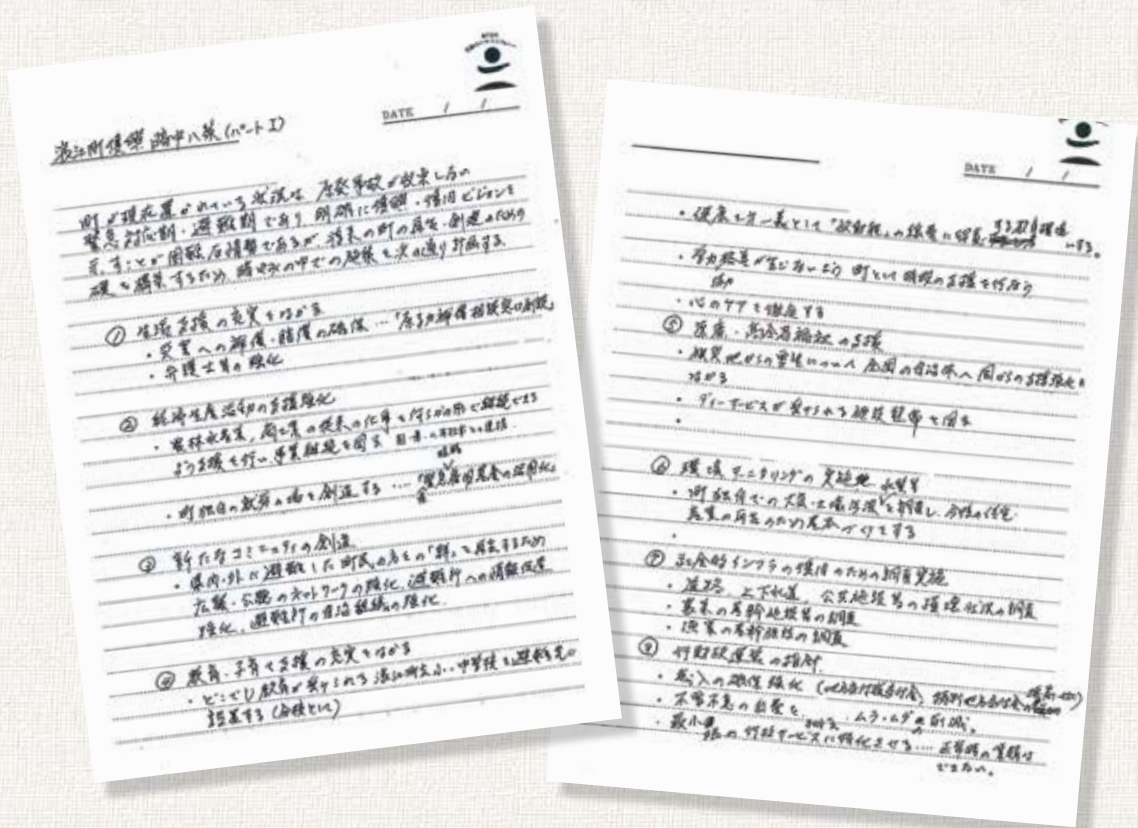 DATE / /
浪江町復興 暗中八策 (パートⅠ)
町が現在置かれている状況は 原発事故が収束し方の
緊急対応期・避難期であり 明確に復興・復旧ビジョンを
示すことが困難な情勢であるが、将来の町の再生・創造のための
礎を構築するため、暗やみの中での施策を次の通り計画する。
① 生活支援の充実をはかる
・災害への補償・賠償の確保 …「原子力補償相談室の創設
・弁護士等の強化
② 経済生産活動の支援強化
・農林水産業、商工業の従来の仕事を何らかの形で継続できる
よう支援を行い、事業継続を図る 国・県
・町独自の就労の場を創造する …「緊急雇用基金の活用化」
③ 新たなコミュニティの創造
・県内・外に避難した町民の方との「絆」を再会するため
広報・公聴のネットワークの強化、避難所への情報伝達
強化、避難所の自治組織の強化
④ 教育・子育て支援の充実をはかる
・どこでも教育が受けられる 浪江町立小・中学校を避難先に
設置する (分校として)
DATE / /
・健康を第一義として "放射能"の検査に
・学力格差が生じないよう 町として の支援を行なう
・心のケアを徹底する
⑤ 医療・高齢者福祉の支援
・被災地からの について 全国の自治体へ国からの支援強化を
はかる
・デイサービスが受けられる施設整備を図る
・
⑥ 環境モニタリングの実施
水質等
・町独自での大気・土壌汚染を調査し、今後の住宅・
産業の再生のため基本づくりとする
・
⑦ 社会的インフラの復旧のための調査実施
・道路、上下水道、公共施設等の環境状況の調査
・農業の基幹施設等の調査
・漁業の基幹施設の調査
⑧ 行財政運営の指針
・歳入の確保強化 (地方交付税交付金、特別地方交付金
・不要不急の自粛を ムラ・ムダの削減。
・最小限の行政サービスに特化させる…. 正常時の業務は
できない。